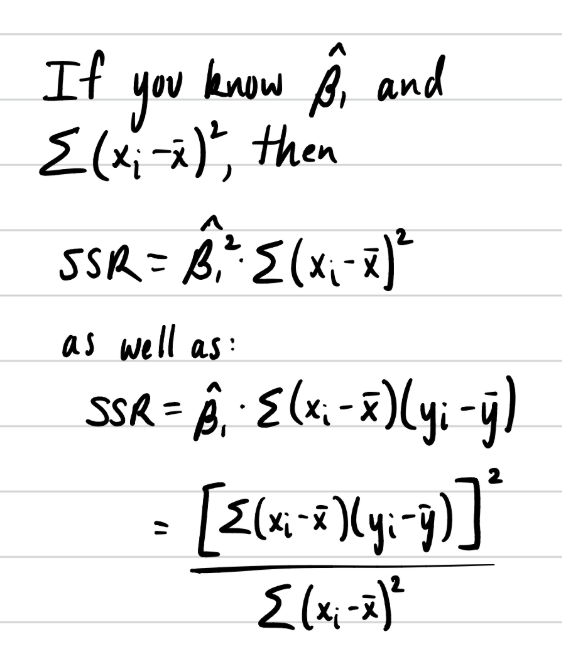 If you know β̂₁ and
Σ(xᵢ-x̄)², then
SSR = β̂₁²·Σ(xᵢ-x̄)²
as well as:
SSR = β̂₁·Σ(xᵢ-x̄)(yᵢ-ȳ)
= [Σ(xᵢ-x̄)(yᵢ-ȳ)]²
Σ(xᵢ-x̄)²